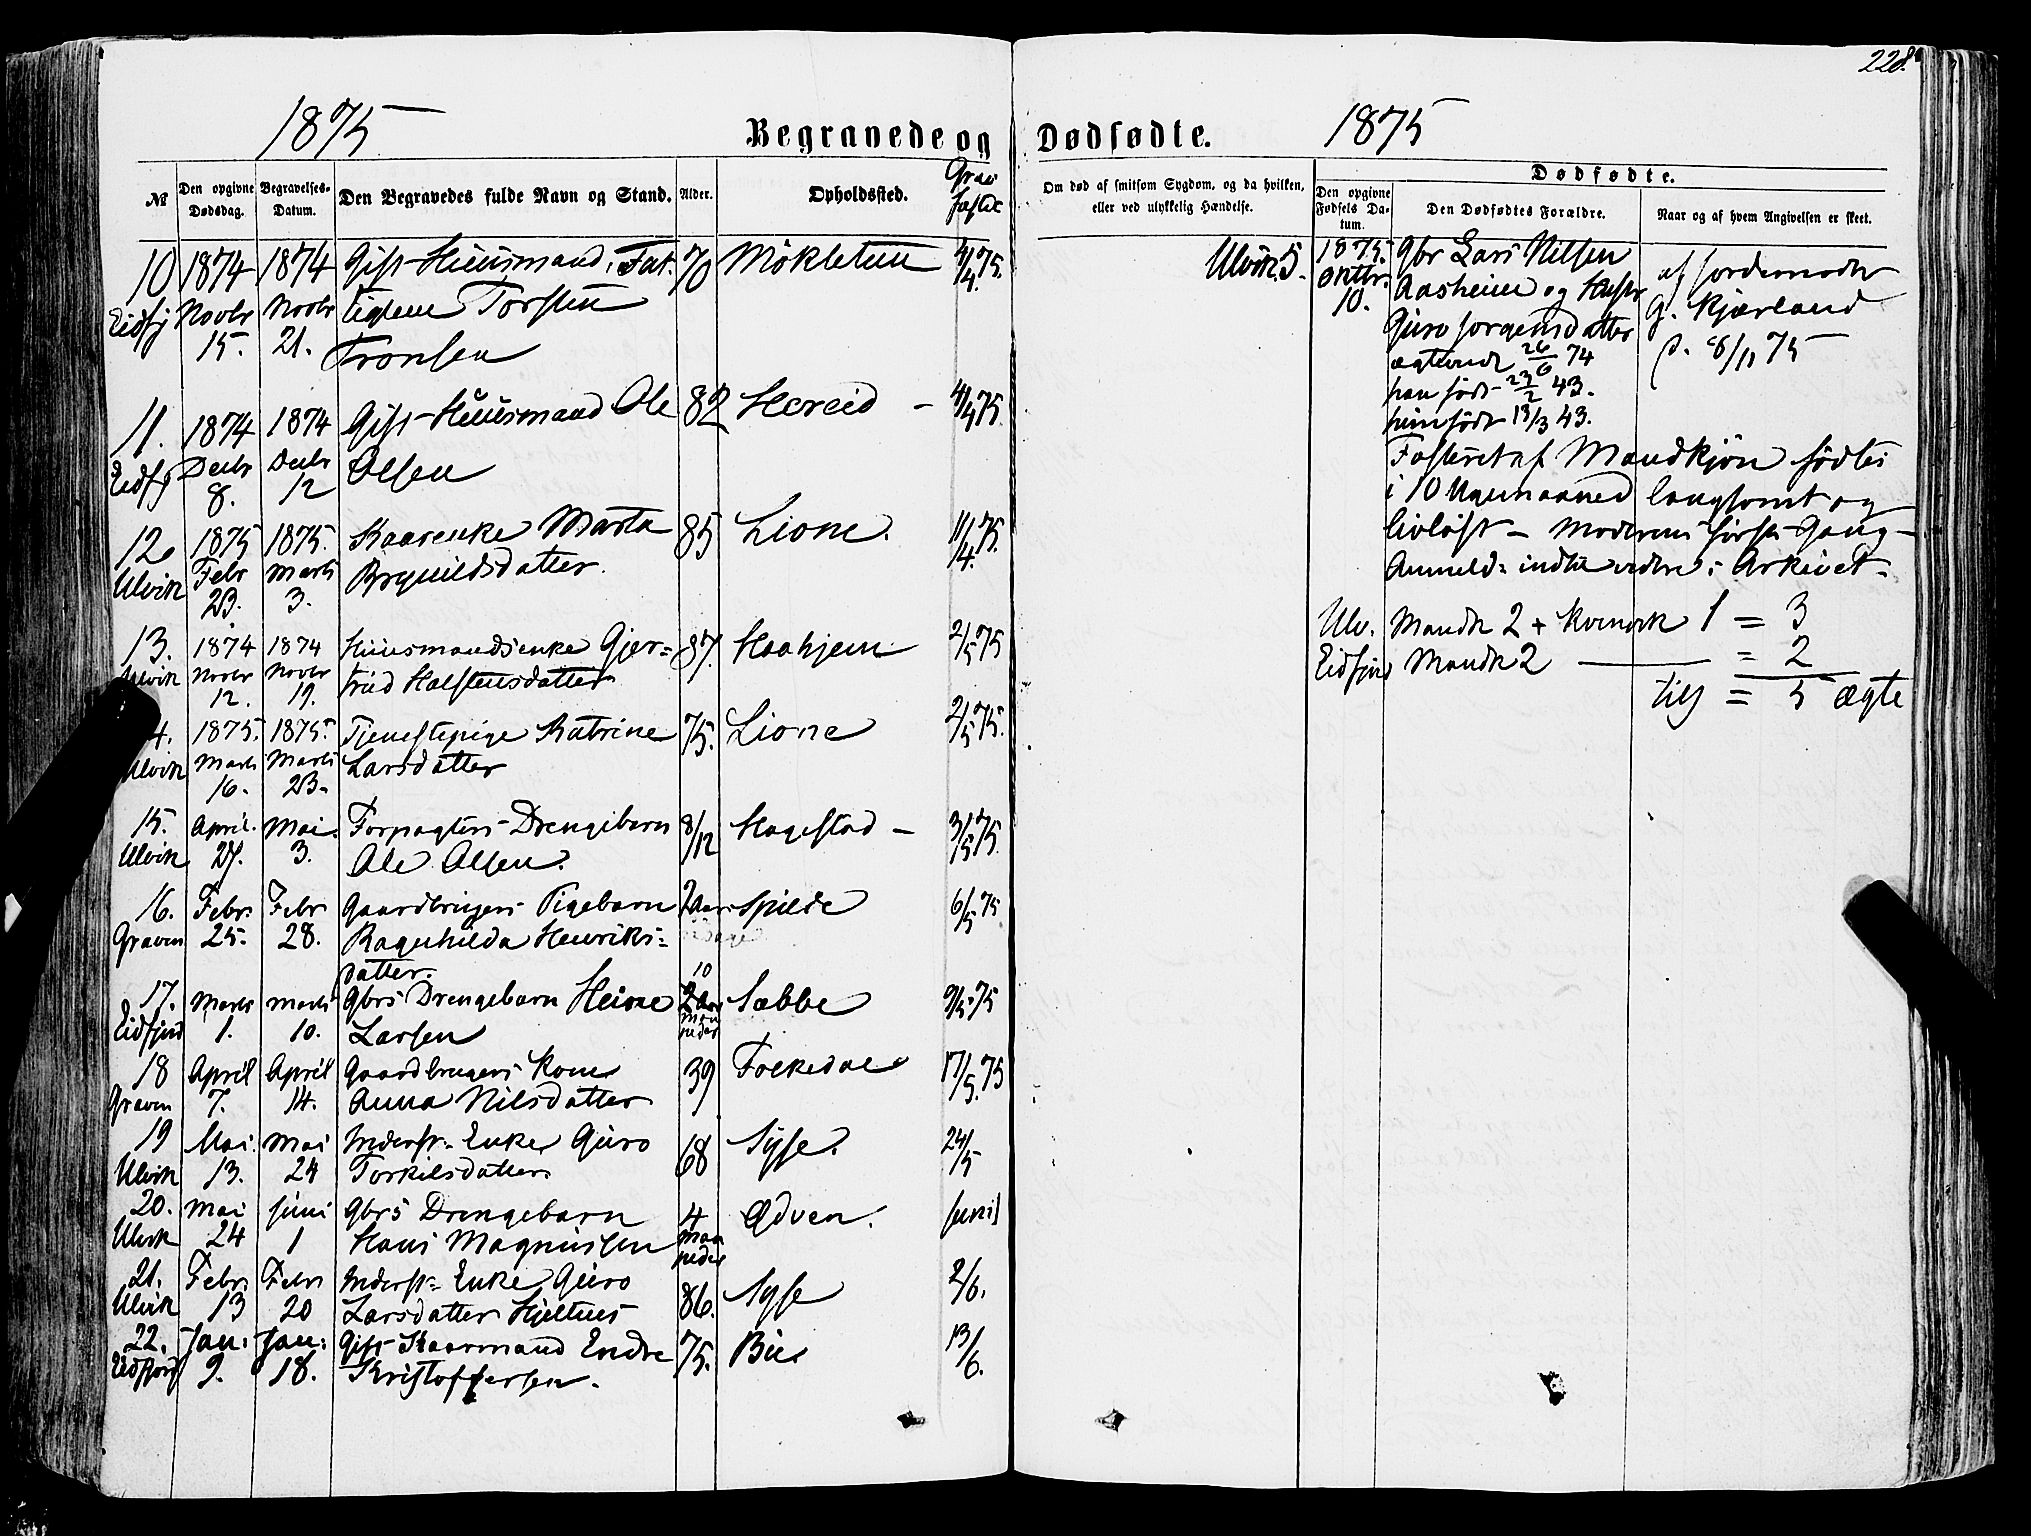 228.
1875
Begravede og Dødfødte.
1875
№ Den opgivne Dødsdag. Begravelses-Datum. Den Begravedes fulde Navn og Stand. Alder. Opholdssted. Grav fæstet
Om død af smitsom Sygdom, og da hvilken, eller ved ulykkelig Hændelse.
Dødfødte.
Den opgivne Fødsels Datum. Den Dødfødtes Forældre. Naar og af hvem Angivelsen er skeet.
10 1874 1874 Gift Huusmand, Fat. 70 Møkletun 4/4 75.
Eidfj Novbr Novbr tigdene Torsten
15. 21. Tronsen
11. 1874 1874 Gift Huusmand Ole 82 Hereid – 4/4 75
Eidfj Decbr Decbr Olsen
8. 12
12. 1875 1875. Kaarenke Marta 85 Lione. 11/4 75.
Ulvik Febr Marts Brynildsdatter.
23. 3.
13. 1874 1874 Huusmandsenke Gjer= 87. Haahjem 2/5 75
Ulvik Novbr Novbr trud Halstensdatter
12. 19.
14. 1875. 1875. Tjenestepige Katrine 75. Lione 2/5 75.
Ulvik Marts Marts Larsdatter
16. 23.
15. April. Mai. Forpagters Drengebarn 8/12 Hagestad – 3/5 75.
Ulvik 27. 3. Ole Olsen.
16. Febr. Febr Gaardbrugers Pigebarn 2 Aar Spilde 6/5 75
Graven 25. 28. Ragnhilda Henriks=
datter.
17. Marts Marts Gbrs Drengebarn Heine 2 Aar 10 Maaneder Sæbbe 9/5 75
Eidfjord 1. 10. Larsen
18 April April Gaardbrugers Kone 39 Folkedal 17/5 75
Graven 7. 14. Anna Nilsdatter
19 Mai. Mai Inderst. Enke Guro 68 Syse. 24/5
Ulvik 13. 24 Torkilsdatter
20. Mai Juni Gbrs Drengebarn 4 Maaneder Ædven. Juni 1
Ulvik 24 1 Hans Magnussen
21. Febr Febr Inderst. Enke Guro 86. Syse 2/6.
Ulvik 13 20 Larsdatter Hjeltnes
22. Jan: Jan: Gift Kaarmand Endre 75. Bu 13/6.
Eidfjord 9. 18. Kristoffersen.
Ulvik. 5. 1875. Gbr Lars Nilsen af Jordemoder
Oktbr. Aasheim og Hustr G. Kjærland
10. Guro Jorgensdatter d. 8/11 75
ægteviede 26/6 74
han født 23/2 43.
hun født 13/3 43.
Fosteret af Mandkjøn fødtes
i 10 Uge maaned langsomt og
livløst – Moderens første Gang –
Anmeld: indtil videre i Arkivet.
Ulv. Mandk 2 + Kvindek 1 = 3
Eidfjord Mandk 2 — = 2
tils = 5 ægte